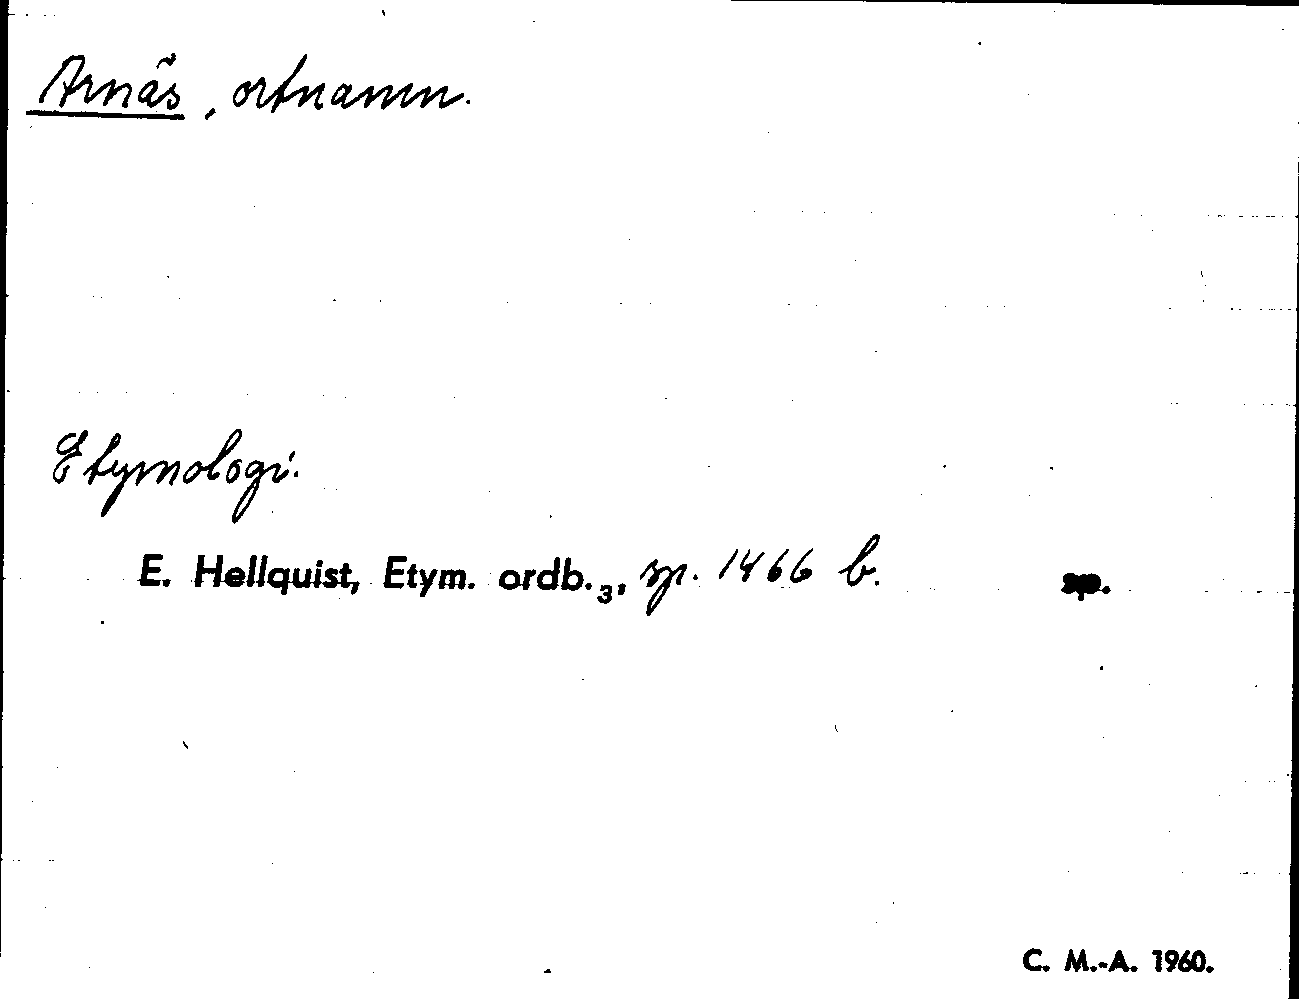 Arnäs, ortnamn.
Etymologi.
E. Hellquist, Etym. ordb.₃, sp. 1466 b. sp.
C. M.-A. 1960.